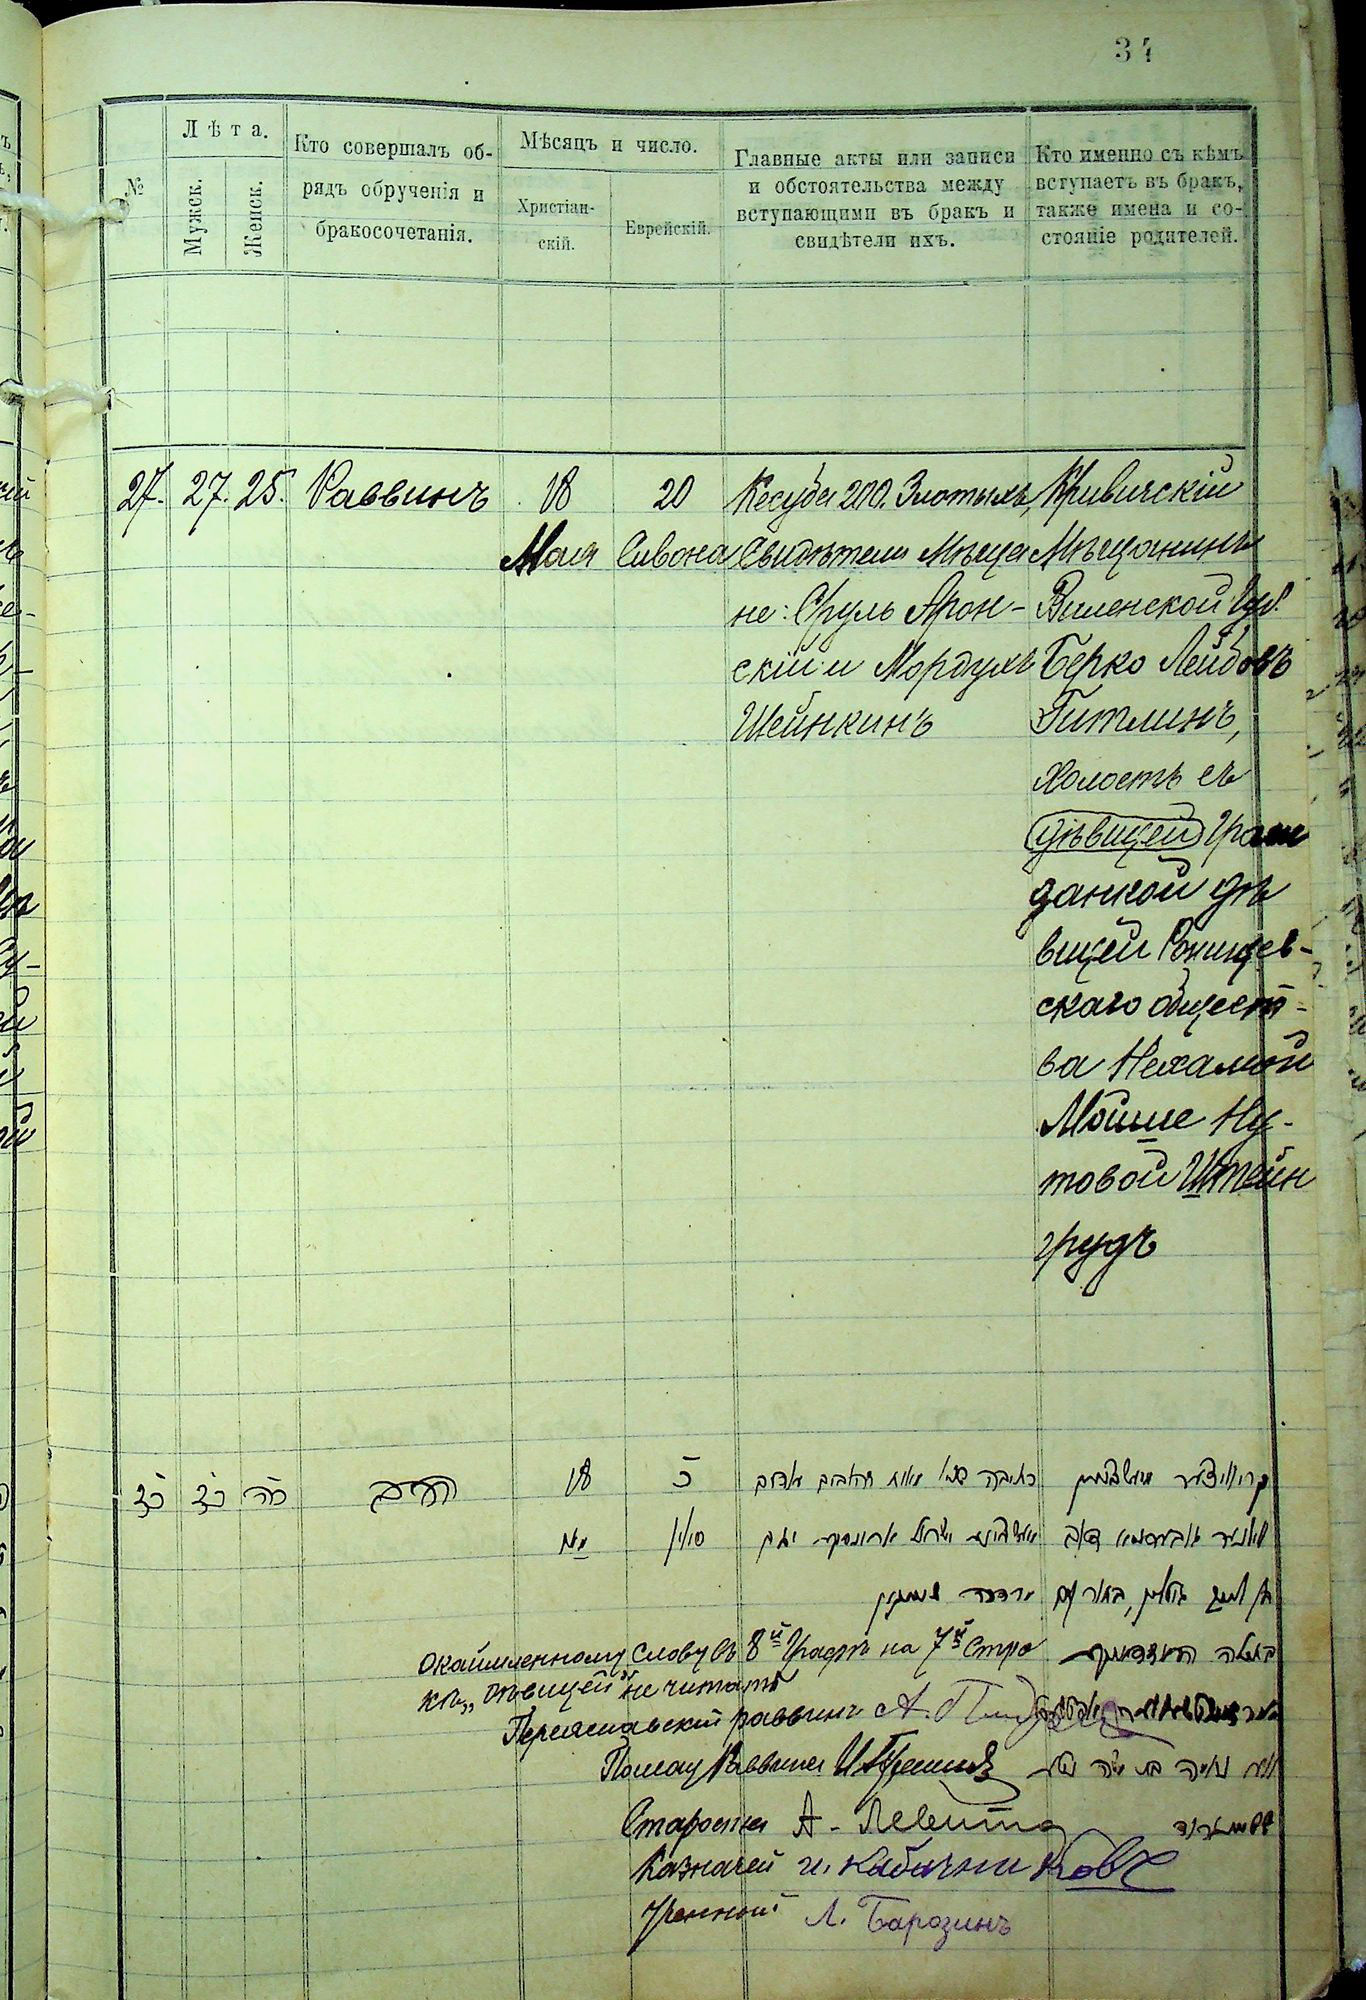 34
№
Лѣта.
Мужск.
Женск.
Кто совершалъ об-
рядъ обрученія и
бракосочетанія.
Мѣсяцъ и число.
Христіан-
скій.
Еврейскій.
Главные акты или записи
и обстоятельства между
вступающими въ бракъ и
свидѣтели ихъ.
Кто именно съ кѣмъ
вступаетъ въ бракъ,
также имена и со-
стояніе родителей.
27.
27.
25.
Раввинъ
18
Мая
20
Сивона
Кесуба 200. Злотыхъ,
Свидѣтели Мѣща
не: Сруль Арон-
скій и Мордухъ
Шейнкинъ
Кривичскій
Мѣщанинъ
Виленской Губ.
Берко Лейбовъ
Гитлинъ,
холостъ съ
дѣвицей Граж
данкой дѣ
вицей
скаго общест-
ва Нехамой
Мойше Ну-
товой Штейн
грудъ
כז
כז
כה
הרב
18
מאי
כ
סיון
כתובה מאתים זהובים עדים
ישראל
מרדכי שיינקין
גיטלין, בחור עם
בתולה
נחמה בת משה נטע
שטיינגרוד
Окаймленному слову въ 8й Графѣ на 7й Стро
кѣ „дѣвицей“ не читать
Переяславскій раввинъ А.
Помощ Раввина
Староста А. Левитъ
Казначей И. Кабачниковъ
Ученный Л. Барозинъ